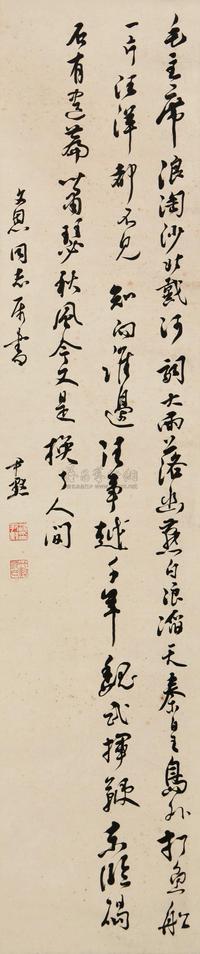 毛主席浪淘沙北戴河词大雨落幽燕白浪滔天秦皇岛外打鱼船
一片汪洋都不见知向谁边往事越千年魏武挥鞭东临碣
石有遗篇萧瑟秋风今又是换了人间
文思同志属书
尹默